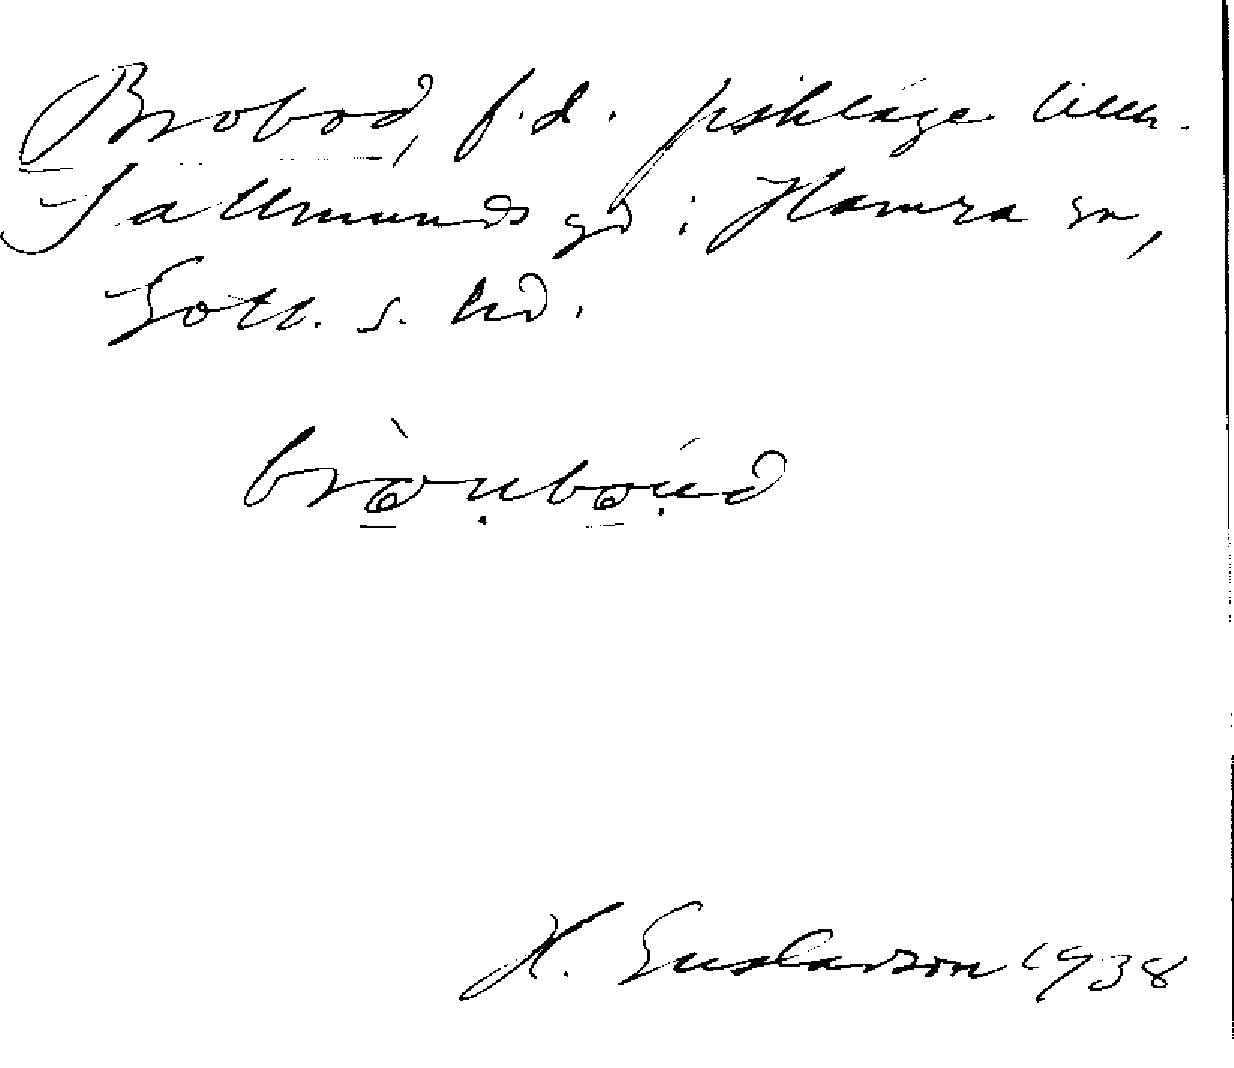 Brobod, f.d. fiskläge tillh.
Sallmunds gd i Hamra sn,
Gotl. s. hd.
bròu̩bóu̩d
H. Gustavson 1938